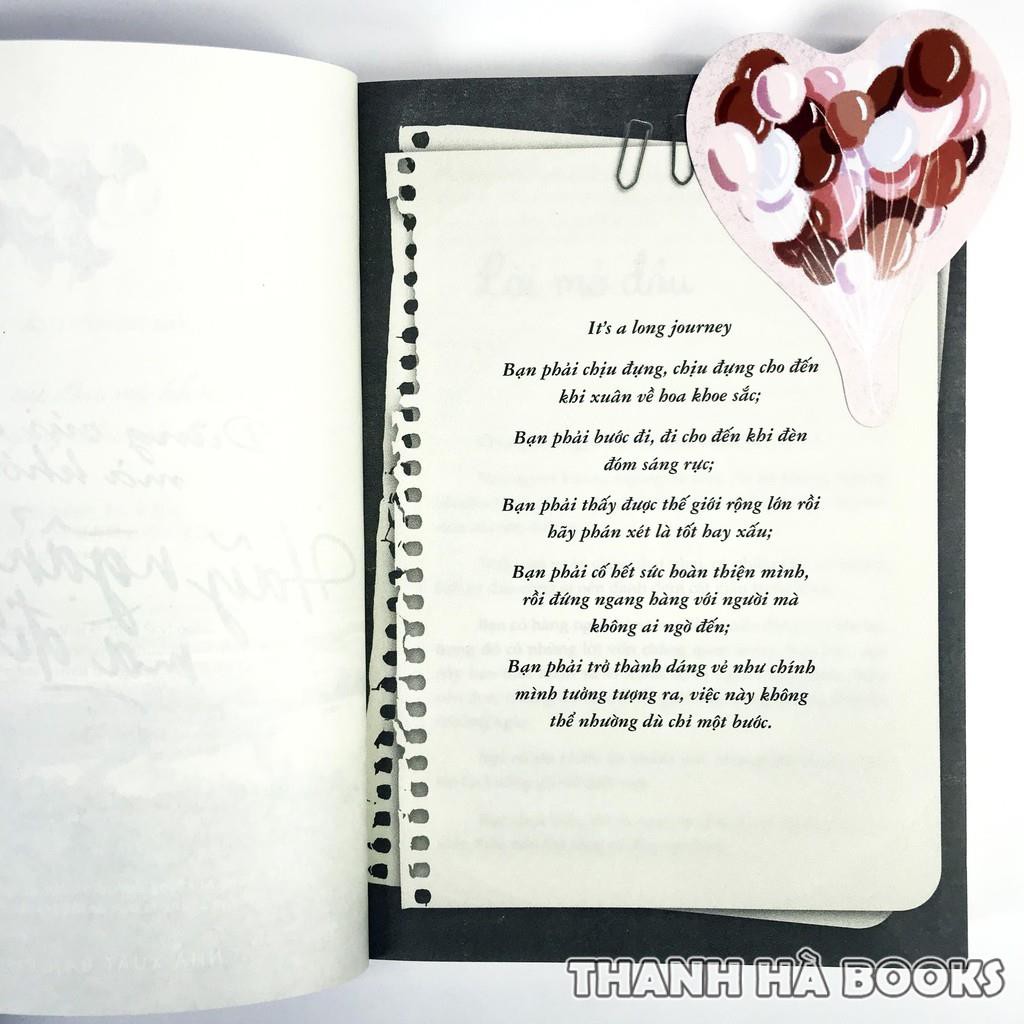 It's a long journey
Bạn phải chịu đựng, chịu đựng cho đến
khi xuân về hoa khoe sắc;
Bạn phải bước đi, đi cho đến khi đèn
đóm sáng rực;
Bạn phải thấy được thế giới rộng lớn rồi
hãy phán xét là tốt hay xấu;
Bạn phải cố hết sức hoàn thiện mình,
rồi đứng ngang hàng với người mà
không ai ngờ đến;
Bạn phải trở thành dáng vẻ như chính
mình tưởng tượng ra, việc này không
thể nhường dù chỉ một bước.
THANH HÀ BOOKS